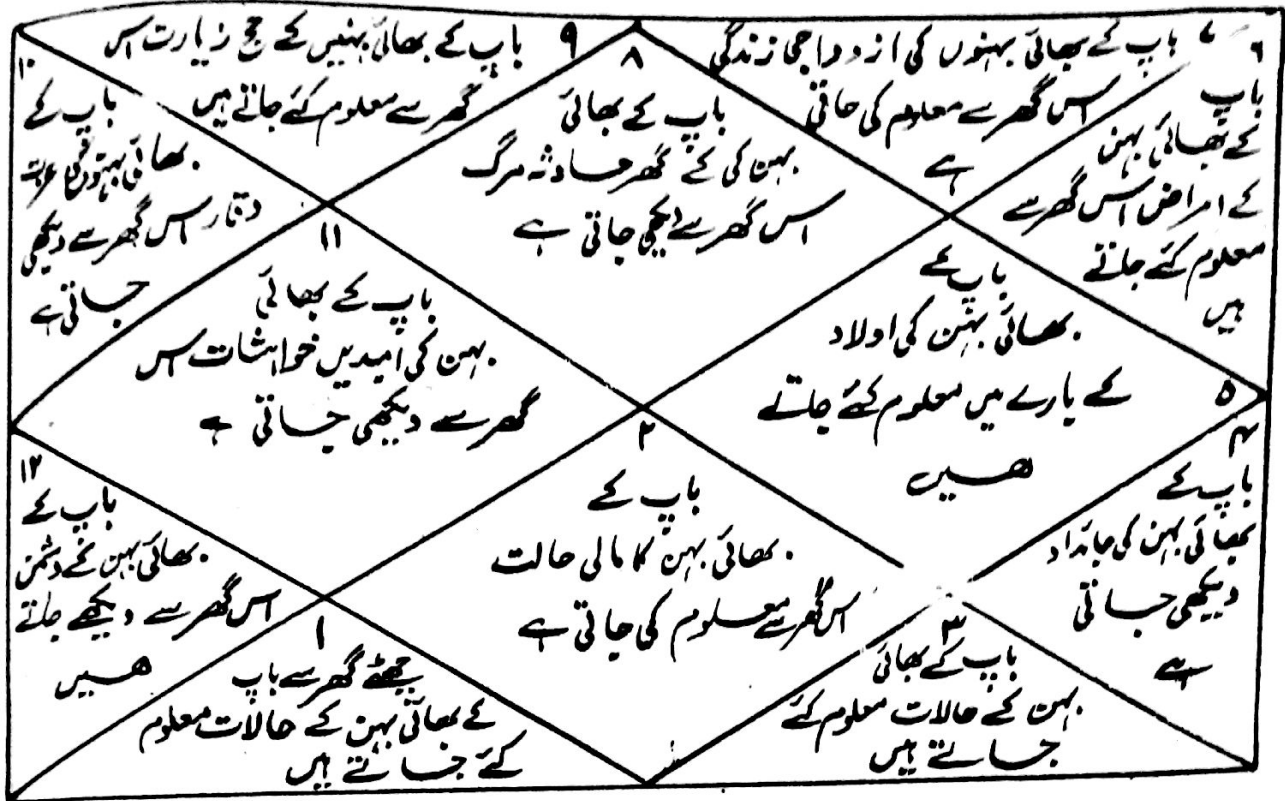 ۹ باپ کے بھائی بہنیں کے حج زیارت اس
گھر سے معلوم کئے جاتے ہیں
۸
باپ کے بھائی
بہن کی کے گھر حادثہ مرگ
اس گھر سے دیکھی جاتی ہے
۷ باپ کے بھائی بہنوں کی ازدواجی زندگی
اس گھر سے معلوم کی جاتی
ہے
۶
باپ
کے بھائی بہن
کے امراض اس گھر سے
معلوم کئے جاتے
ہیں
۱۰
باپ کے
بھائی بہنوں کی عزت
وقار اس گھر سے دیکھی
جاتی ہے
۱۱
باپ کے بھائی
بہن کی امیدیں خواہشات اس
گھر سے دیکھی جاتی ہے
باپ کے
بھائی بہن کی اولاد
کے بارے میں معلوم کئے جاتے
ھیں
۵
۱۲
باپ کے
بھائی بہن کے دشمن
اس گھر سے دیکھے جاتے
ھیں
۲
باپ کے
بھائی بہن کا مالی حالت
اس گھر سے معلوم کی جاتی ہے
۴
باپ کے
بھائی بہن کی جائداد
دیکھی جاتی
ہے
۱
چھٹے گھر سے باپ
کے بھائی بہن کے حالات معلوم
کئے جاتے ہیں
۳
باپ کے بھائی
بہن کے حالات معلوم کئے
جاتے ہیں